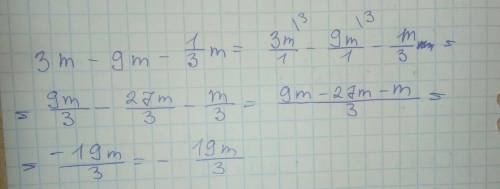 3m - 9m - 1/3 m = 3m/1 \3 - 9m/1 \3 - m/3 =
= 9m/3 - 27m/3 - m/3 = (9m - 27m - m)/3 =
= -19m/3 = - 19m/3